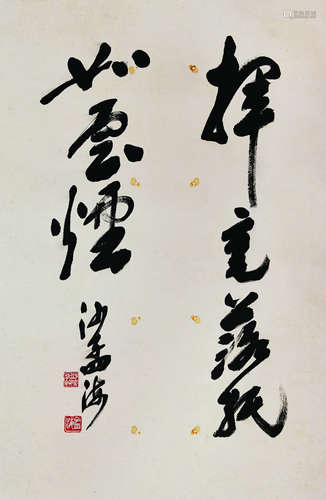 揮毫落紙
如雲煙
沙孟海